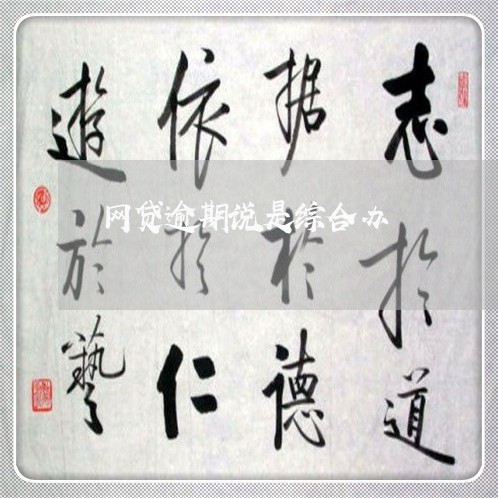 志於道
据於德
依於仁
遊於藝
网贷逾期说是综合办